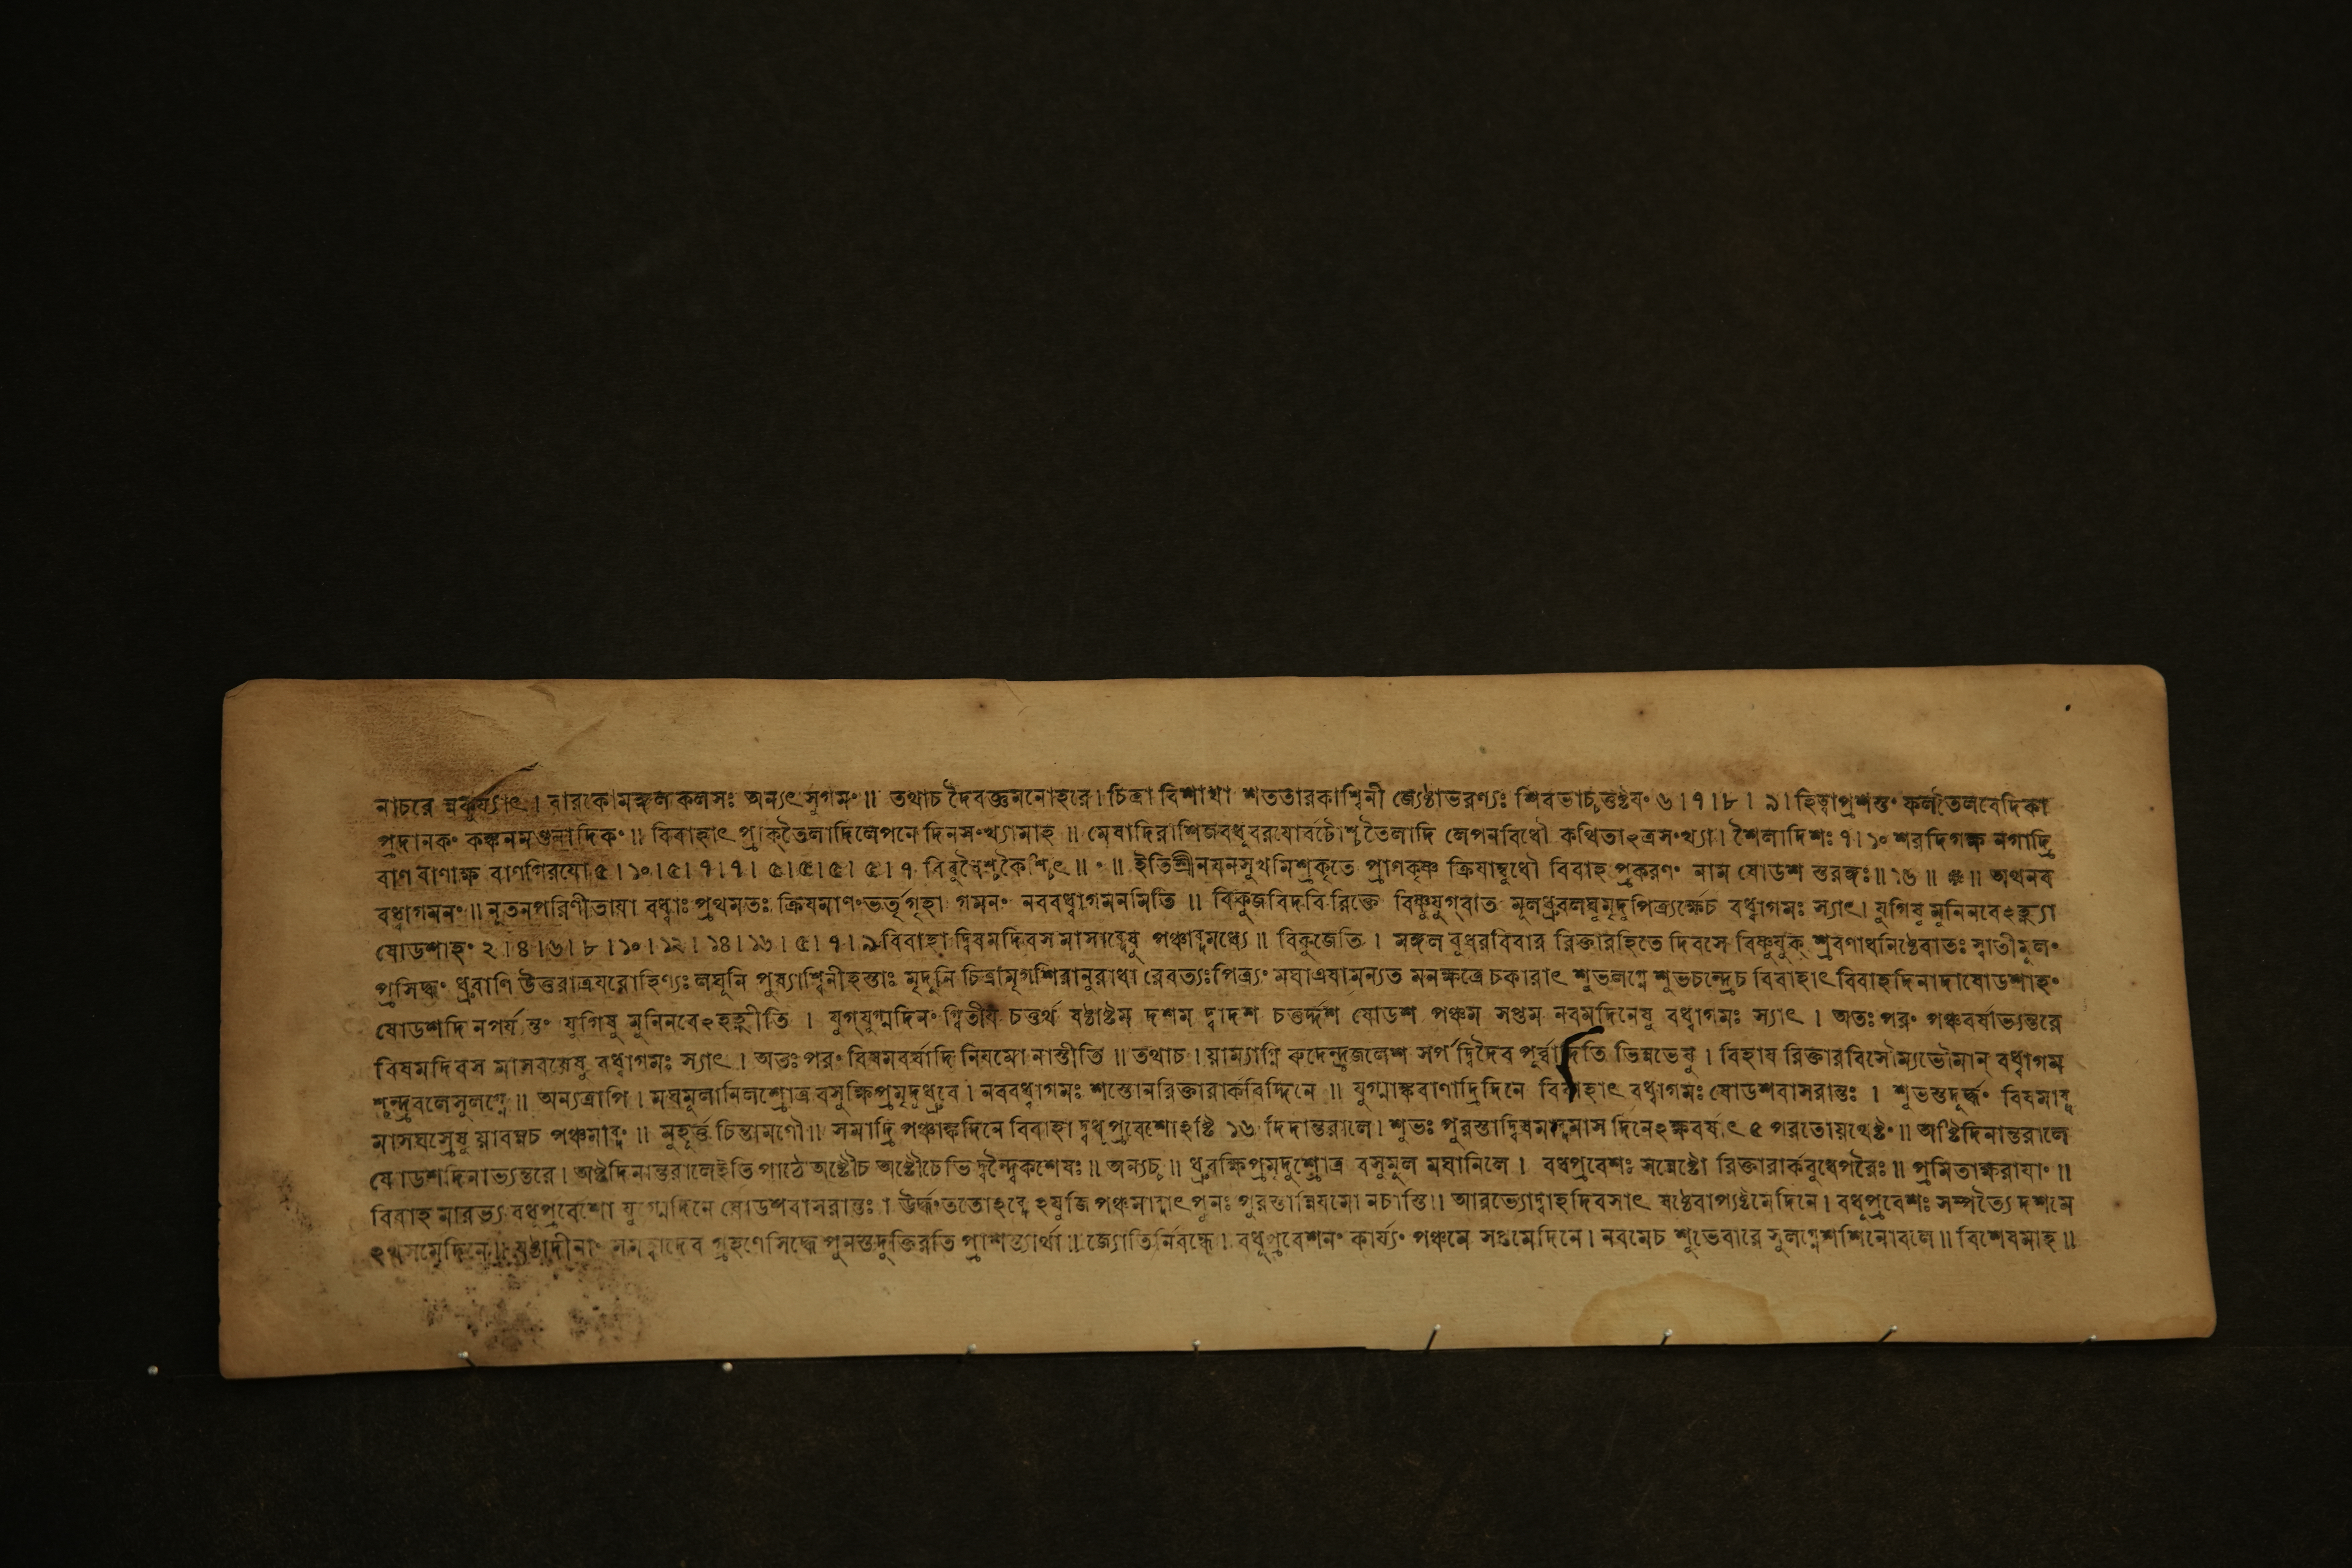 নাচরে ন্নকুর্য্যাৎ । বারকোমঙ্গল কলসঃ অন্যৎ সুগমং ॥ তথাচ দৈবজ্ঞমনোহরে । চিত্রা বিশাখা শততারকাশ্বিনী জ্যেষ্ঠাভরণ্যঃ শিবভাচ্চতুষ্টয়ং ৬ । ৭ । ৮ । ৯ । হিত্বাপ্রশস্তং ফলতৈলবেদিকা
প্রদানকং কঙ্কনমণ্ডনাদিকং ॥ বিবাহাৎ প্রাক্ তৈলাদিলেপনে দিনসংখ্যামাহ ॥ মেষাদিরাশিজবধূবরযোর্বটোশ্চ তৈলাদি লেপনবিধৌ কথিতাঽত্রসংখ্যা । শৈলাদিশঃ ৭ । ১০ শরদিগক্ষ নগাদ্রি
বাণ বাণাক্ষ বাণগিরযো ৫ । ১০ । ৫ । ৭ । ৭ । ৫ । ৫ । ৫ । ৫ । ৭ বিবুধৈশ্চকৈশ্চিৎ ॥ ॰ ॥ ইতিশ্রীনয়নসুখমিশ্রকৃতে প্রাণকৃষ্ণ ক্রিযাম্বুধৌ বিবাহ প্রকরণং নাম ষোডশ স্তরঙ্গঃ ॥ ১৬ ॥ ॥ অথনব
বধ্বাগমনং ॥ নূতনপরিণীতায়া বধ্বাঃ প্রথমতঃ ক্রিযমাণং ভর্তৃগৃহা গমনং নববধ্বাগমনমিতি ॥ বিকুজবিদবি রিক্তে বিষ্ণুযুগ্‌বাত মূলধ্রুবলঘুমৃদুপিত্র্যর্ক্ষেচ বধ্বাগমঃ স্যাৎ । যুগিষু মুনিনবেঽহ্ন্যা
ষোডশাহং ২ । ৪ । ৬ । ৮ । ১০ । ১২ । ১৪ । ১৬ । ৫ । ৭ । ৯ বিবাহা দ্বিষমদিবস মাসাব্দেষু পঞ্চাব্দমধ্যে ॥ বিকুজেতি । মঙ্গল বুধরবিবার রিক্তারহিতে দিবসে বিষ্ণুযুক্ শ্রবণাধনিষ্ঠেবাতঃ স্বাতীমূলং
প্রসিদ্ধং ধ্রুবাণি উত্তরাত্রযরোহিণ্যঃ লঘূনি পুষ্যাশ্বিনীহস্তাঃ মৃদুনি চিত্রামৃগশিরানুরাধা রেবত্যঃ পিত্র্যং মঘা এষামন্যত মনক্ষত্রে চকারাৎ শুভলগ্নে শুভচন্দ্রেচ বিবাহাৎ বিবাহদিনাদাষোডশাহং
ষোডশদি নপর্য ন্তং যুগিষু মুনিনবেঽহহ্নীতি । যুগ্‌যুগ্মদিনং দ্বিতীয চতুর্থ ষষ্ঠাষ্টম দশম দ্বাদশ চতুর্দ্দশ ষোডশ পঞ্চম সপ্তম নবমদিনেষু বধ্বাগমঃ স্যাৎ । অতঃ পরং পঞ্চবর্ষাভ্যন্তরে
বিষমদিবস মাসবর্ষেষু বধ্বাগমঃ স্যাৎ । অতঃ পরং বিষমবর্ষাদি নিযমো নাস্তীতি ॥ তথাচ । য়াম্যাগ্নি রুদ্রেন্দ্রজলেশ সর্প দ্বিদৈব পূর্ব্বাদিতি ভিন্নভেষু । বিহায রিক্তারবিসৌম্যভৌমান্ বধ্বাগম
শ্চন্দ্রবলেসুলগ্নে ॥ অন্যত্রাপি । মঘমূলানিলশ্রোত্র বসুক্ষিপ্রমৃদুধ্রুবে । নববধ্বাগমঃ শস্তোনরিক্তারার্কবিদ্দিনে ॥ যুগ্মাঙ্কবাণাদ্রিদিনে বিবাহাৎ বধ্বাগমঃ ষোডশবাসরান্তঃ । শুভস্তদূর্দ্ধং বিষমাব্দ
মাসঘস্রেষু য়াবন্নচ পঞ্চমাব্দং ॥ মুহূর্ত্ত চিন্তামণৌ ॥ সমাদ্রি পঞ্চাঙ্কদিনে বিবাহা দ্বধূপ্রবেশোঽষ্টি ১৬ দিনান্তরালে । শুভঃ পুরস্তাদ্বিষমাব্দমাস দিনেঽক্ষবর্ষাৎ ৫ পরতোয়থেষ্টং ॥ অষ্টিদিনান্তরালে
ষোডশদিনাভ্যন্তরে । অষ্টদিনান্তরালেইতি পাঠে অষ্টৌচ অষ্টৌচেতি দ্বন্দ্বৈকশেষঃ ॥ অন্যচ্চ ॥ ধ্রুবক্ষিপ্রমৃদুশ্রোত্র বসুমূল মঘানিলে । বধূপ্রবেশঃ সন্নেষ্টো রিক্তারার্কবুধেপরৈঃ ॥ প্রমিতাক্ষরাযাং ॥
বিবাহ মারভ্য বধূপ্রবেশো যুগ্মদিনে ষোডশবাসরান্তঃ । ঊর্দ্ধং ততোঽব্দেঽযুজি পঞ্চমাব্দাৎ পুনঃ পুরস্তান্নিযমো নচাস্তি । আরভ্যোদ্বাহদিবসাৎ ষষ্ঠেবাপ্যষ্টমেদিনে । বধূপ্রবেশঃ সম্পত্যৈ দশমে
দেব গ্রহণেসিদ্ধে পুনস্তদুক্তিরতি প্রাশস্ত্যার্থা ॥ জ্যোতির্নিবন্ধে । বধূপ্রবেশনং কার্য্যং পঞ্চমে সপ্তমেদিনে । নবমেচ শুভেবারে সুলগ্নেশশিনোবলে ॥ বিশেষমাহ ॥